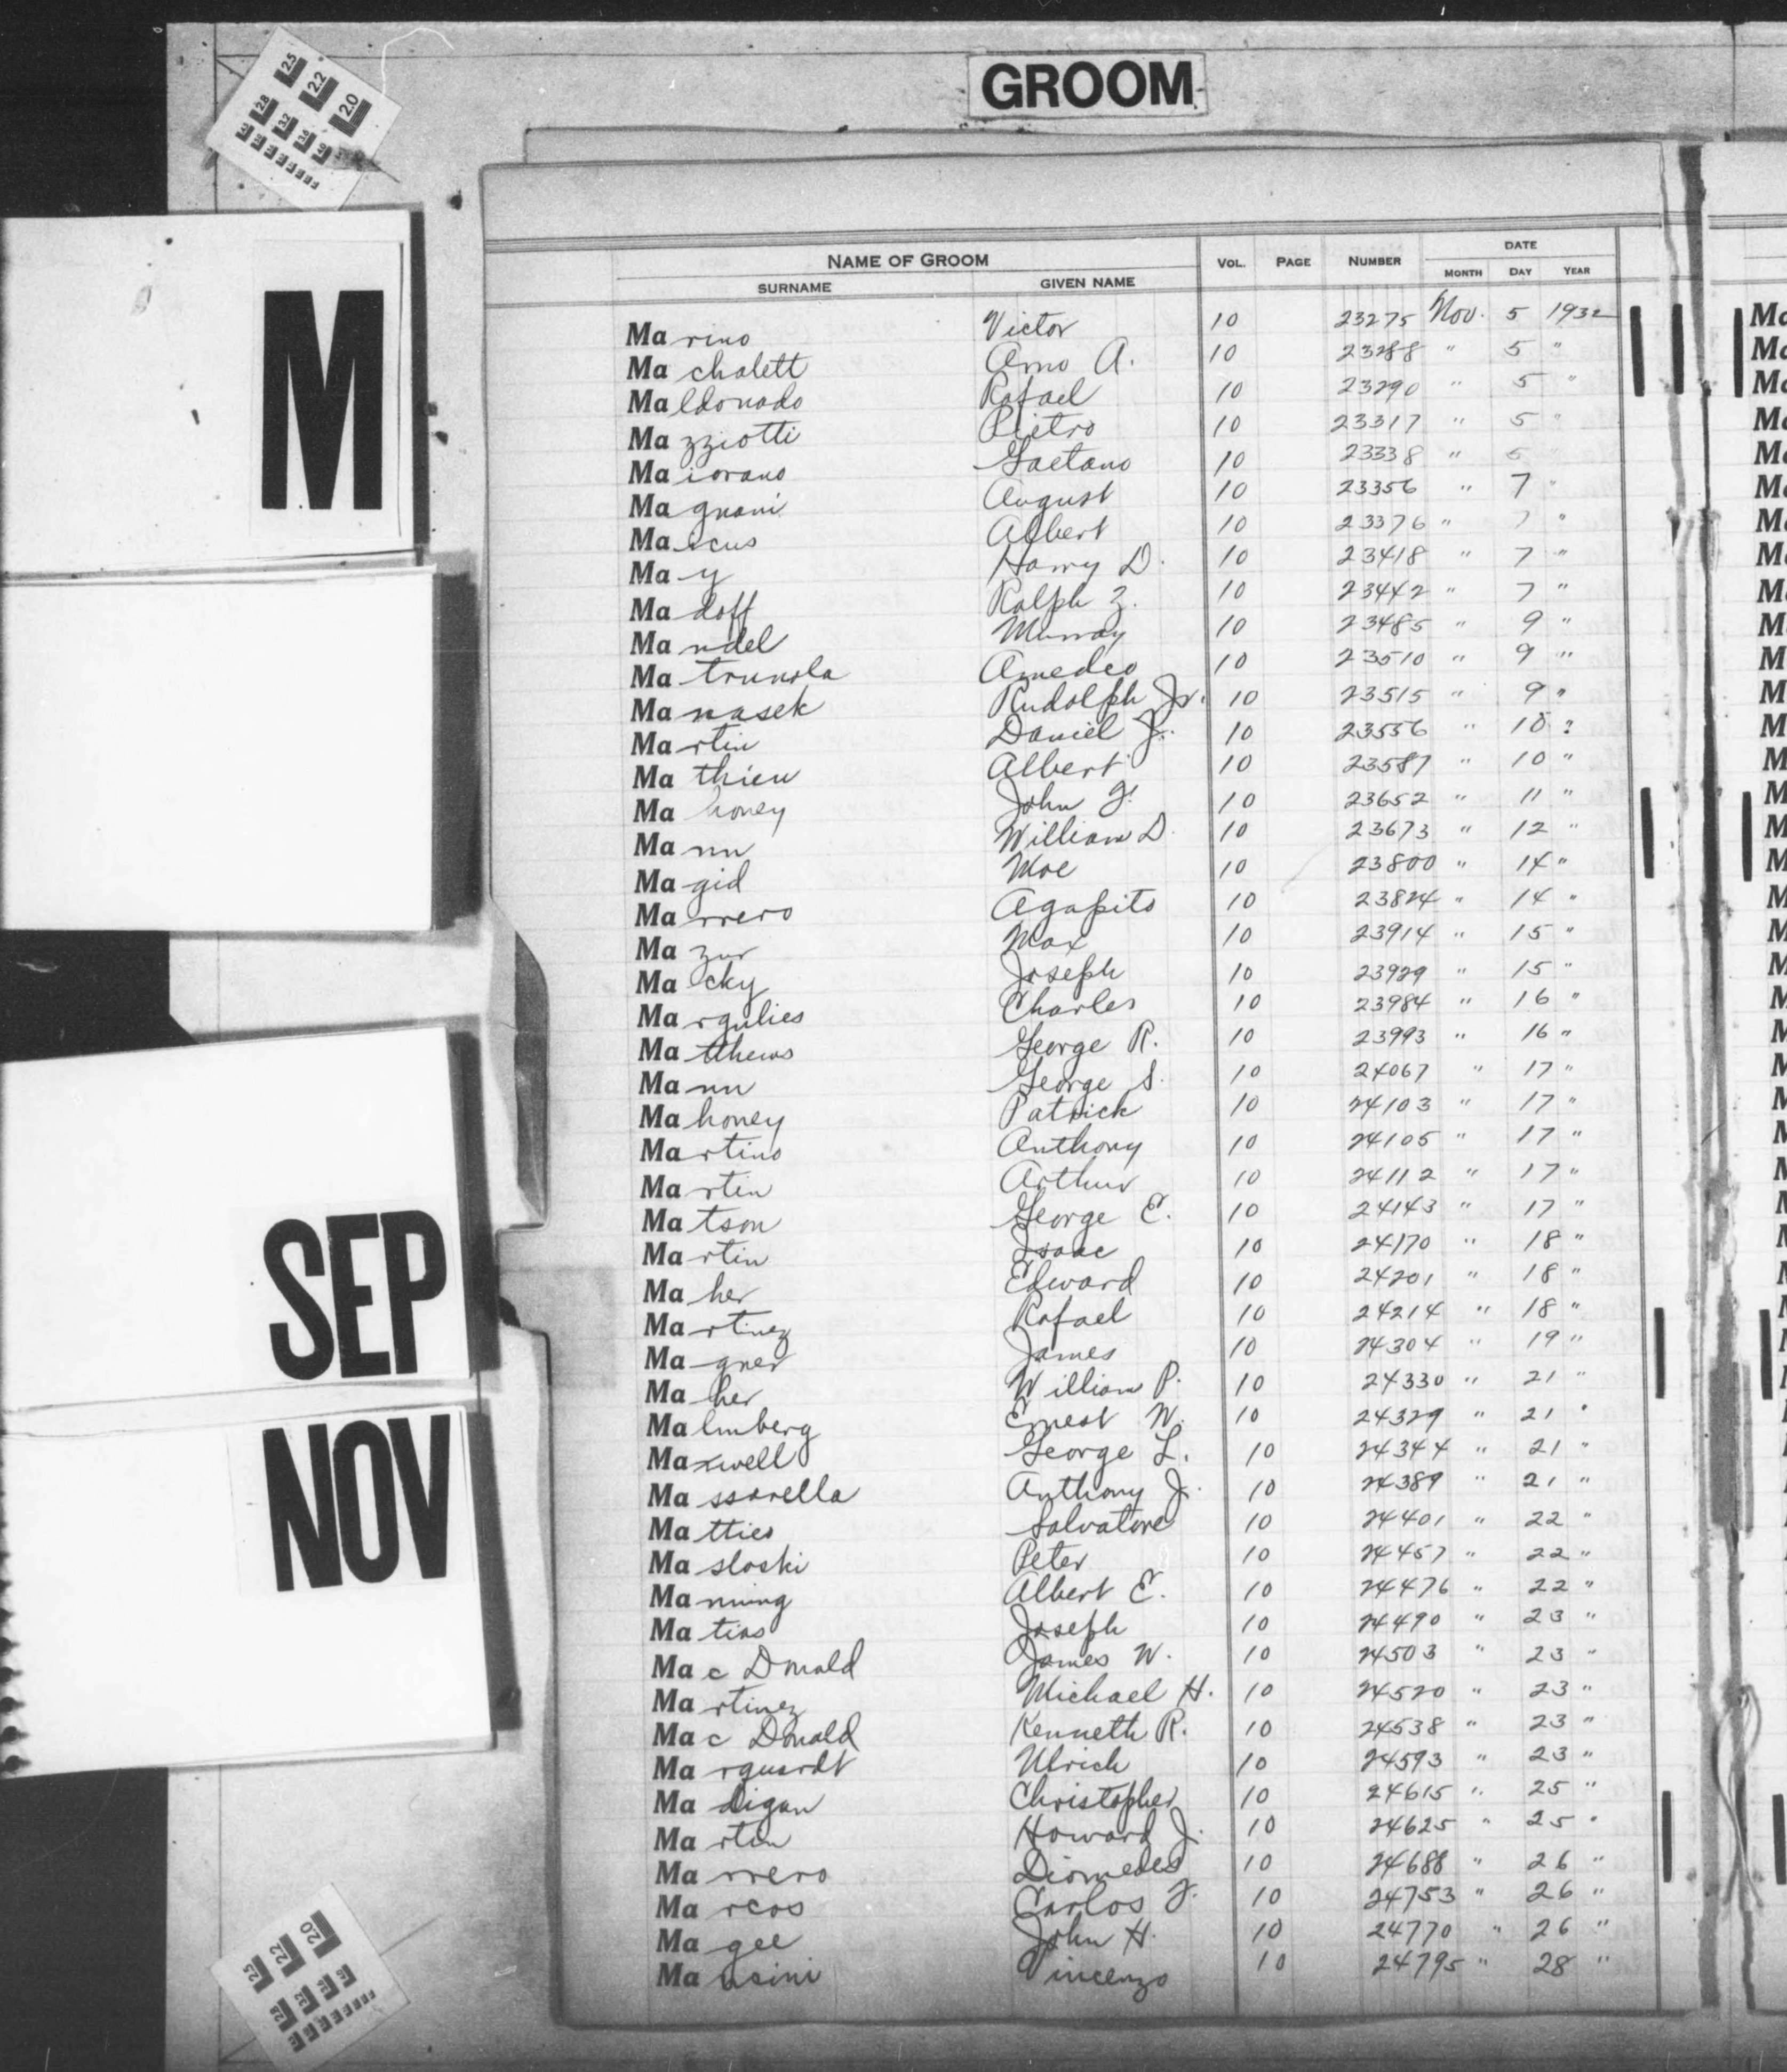 GROOM
M
SEP
NOV
NAME OF GROOM VOL. PAGE NUMBER DATE
SURNAME GIVEN NAME MONTH DAY YEAR
Marino Victor 10 23275 Nov. 5 1932
Machalett Arno A. 10 23288 " 5 "
Maldonado Rafael 10 23290 " 5 "
Mazziotti Pietro 10 23317 " 5 "
Maiorano Gaetano 10 23338 " 5 "
Magnani August 10 23356 " 7 "
Marcus Albert 10 23376 " 7 "
May Harry D. 10 23418 " 7 "
Madoff Ralph Z. 10 23442 " 7 "
Mandel Murray 10 23485 " 9 "
Matrunola Amedeo 10 23510 " 9 "
Manasek Rudolph Jr. 10 23515 " 9 "
Martin Daniel J. 10 23556 " 10 "
Mathieu Albert 10 23587 " 10 "
Mahoney John J. 10 23652 " 11 "
Mann William D. 10 23673 " 12 "
Magid Moe 10 23800 " 14 "
Marrero Agapito 10 23824 " 14 "
Mazur Max 10 23914 " 15 "
Macky Joseph 10 23929 " 15 "
Margulies Charles 10 23984 " 16 "
Matthews George R. 10 23993 " 16 "
Mann George S. 10 24067 " 17 "
Mahoney Patrick 10 24103 " 17 "
Martino Anthony 10 24105 " 17 "
Martin Arthur 10 24112 " 17 "
Matson George E. 10 24143 " 17 "
Martin Isaac 10 24170 " 18 "
Maher Edward 10 24201 " 18 "
Martinez Rafael 10 24214 " 18 "
Magner James 10 24304 " 19 "
Maher William P. 10 24330 " 21 "
Malmberg Ernest W. 10 24329 " 21 "
Maxwell George L. 10 24344 " 21 "
Massarella Anthony J. 10 24389 " 21 "
Matties Salvatore 10 24401 " 22 "
Masloski Peter 10 24457 " 22 "
Manning Albert E. 10 24476 " 22 "
Matias Joseph 10 24490 " 23 "
Mac Donald James W. 10 24503 " 23 "
Martinez Michael H. 10 24520 " 23 "
Mac Donald Kenneth R. 10 24538 " 23 "
Marquardt Ulrich 10 24593 " 23 "
Madigan Christopher 10 24615 " 25 "
Martin Howard J. 10 24625 " 25 "
Marrero Diomedes 10 24688 " 26 "
Marcos Carlos J. 10 24753 " 26 "
Magee John H. 10 24770 " 26 "
Mausini Vincenzo 10 24795 " 28 "